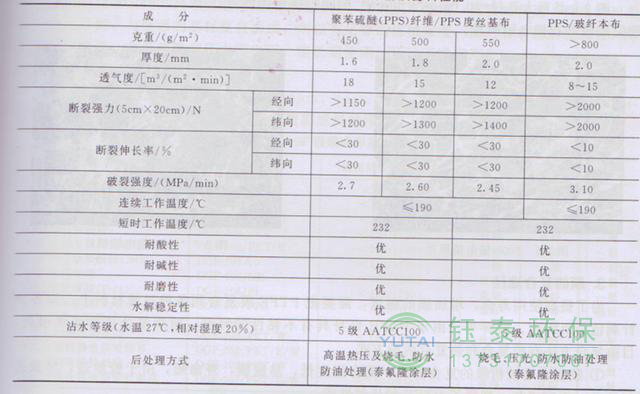 成 分 聚苯硫醚(PPS)纤维/PPS度丝基布 PPS/玻纤本布
克重/(g/m²) 450 500 550 >800
厚度/mm 1.6 1.8 2.0 2.0
透气度/[m³/(m²·min)] 18 15 12 8~15
断裂强力(5cm×20cm)/N 经向 >1150 >1200 >1200 >2000
纬向 >1200 >1300 >1400 >2000
断裂伸长率/% 经向 <30 <30 <30 <10
纬向 <30 <30 <30 <10
破裂强度/(MPa/min) 2.7 2.60 2.45 3.10
连续工作温度/℃ ≤190 ≤190
短时工作温度/℃ 232 232
耐酸性 优 优
耐碱性 优 优
耐磨性 优 优
水解稳定性 优 优
沾水等级(水温27℃,相对湿度20%) 5级 AATCC100 5级 AATCC100
后处理方式 高温热压及烧毛、防水 烧毛、压光、防水防油处理
防油处理(泰氟隆涂层) (泰氟隆涂层)
YUTAI 钰泰环保